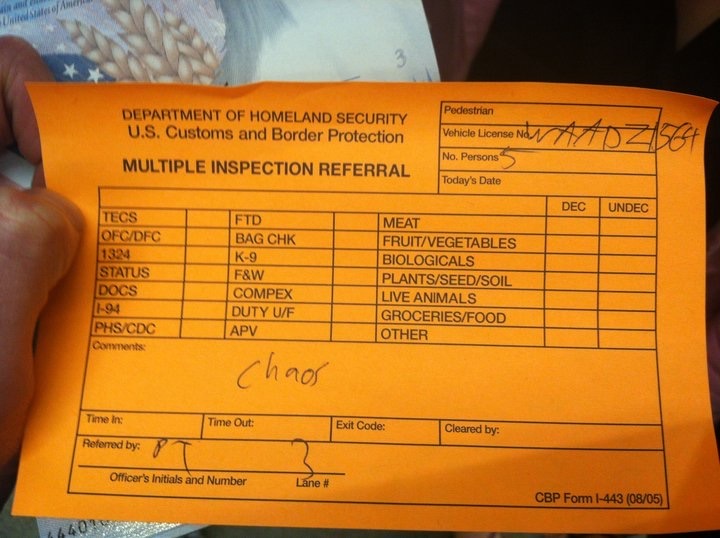 United States of America
3
DEPARTMENT OF HOMELAND SECURITY
U.S. Customs and Border Protection
MULTIPLE INSPECTION REFERRAL
Pedestrian
Vehicle License No.
No. Persons 5
Today's Date
DEC UNDEC
TECS FTD MEAT
OFC/DFC BAG CHK FRUIT/VEGETABLES
1324 K-9 BIOLOGICALS
STATUS F&W PLANTS/SEED/SOIL
DOCS COMPEX LIVE ANIMALS
I-94 DUTY U/F GROCERIES/FOOD
PHS/CDC APV OTHER
Comments:
Chaos
Time In: Time Out: Exit Code: Cleared by:
Referred by: PT 3
Officer's Initials and Number Lane #
CBP Form I-443 (08/05)